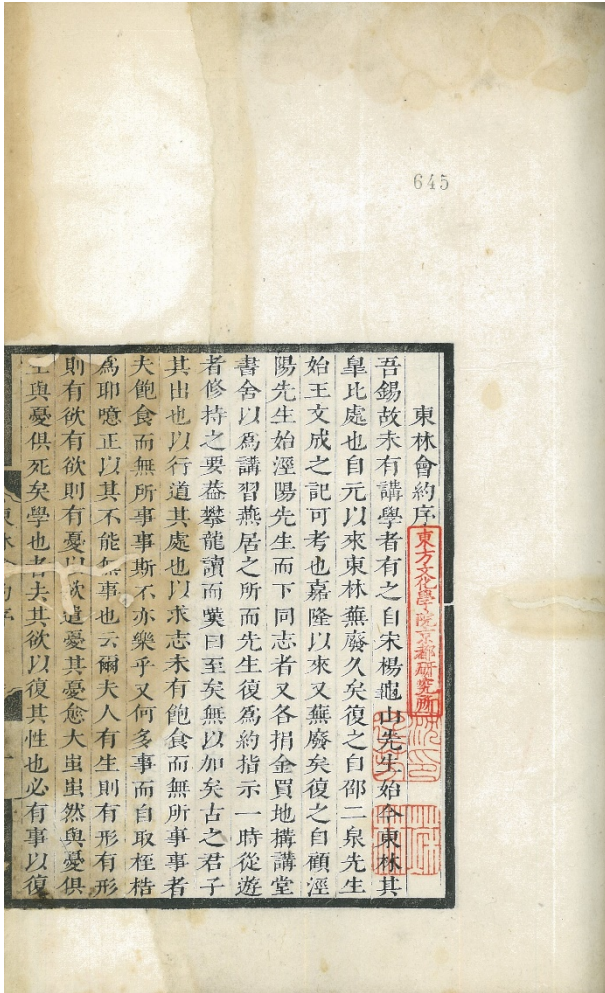 645
東林會約序
吾錫故未有講學者有之自宋楊龜山先生始今東林其
皐比處也自元以來東林蕪廢久矣復之自邵二泉先生
始王文成之記可考也嘉隆以來又蕪廢矣復之自顧涇
陽先生始涇陽先生而下同志者又各捐金買地搆講堂
書舍以爲講習燕居之所而先生復爲約指示一時從遊
者修持之要葢攀龍讀而歎曰至矣無以加矣古之君子
其出也以行道其處也以求志未有飽食而無所事事者
夫飽食而無所事事斯不亦樂乎又何多事而自取桎梏
爲耶噫正以其不能無事也云爾夫人有生則有形有形
則有欲有欲則有憂以欲遣憂其憂愈大蚩蚩然與憂俱
生與憂俱死矣學也者去其欲以復其性也必有事以復
東方文化學院京都研究所